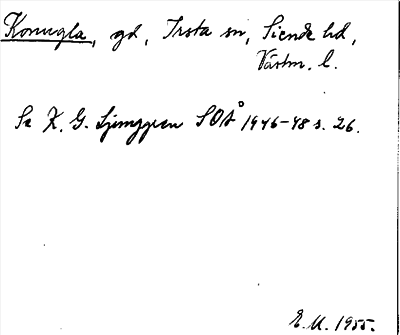 Konugla, gd, Irsta sn, Siende hd,
Västm. l.
Se K. G. Ljunggren SOÅ 1946-48 s. 26.
E. M. 1955.